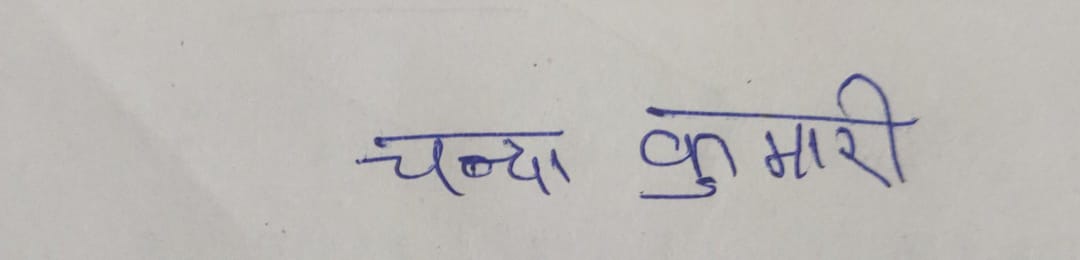 चन्दा कुमारी